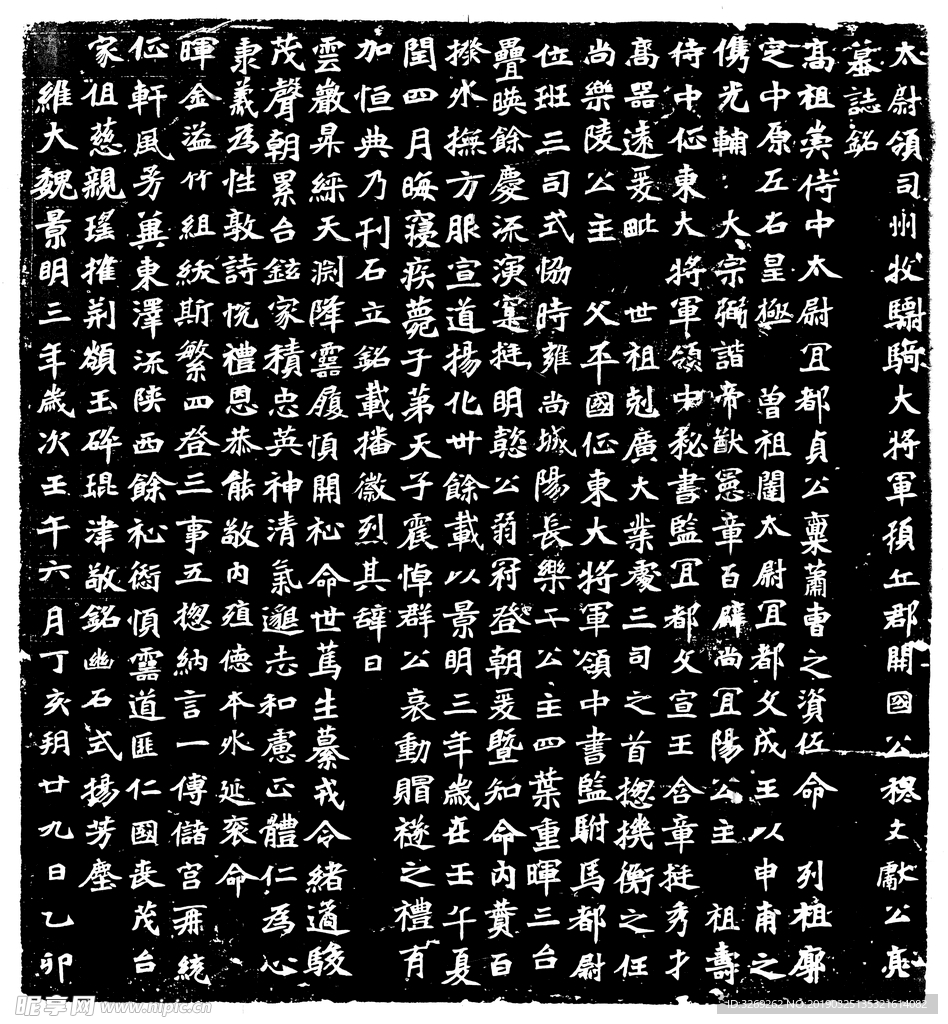 太尉領司州牧驃騎大將軍頓丘郡開國公穆文獻公亮
墓誌銘
高祖崇侍中太尉冝都貞公稟蕭曹之資佐命列祖廓
定中原五右皇極曾祖闥太尉冝都文成王以申甫之
儁光輔大宗弼諧帝猷憲章百辟尚冝陽公主祖壽
侍中征東大將軍領中秘書監冝都文宣王含章挺秀才
高器遠爰毗世祖剋廣大業處三司之首揔機衡之任
尚樂陵公主父平國征東大將軍領中書監駙馬都尉
位班三司式協時雍尚城陽長樂二公主四葉重暉三台
疊暎餘慶流演寔挺明懿公弱冠登朝爰暨知命內賛百
揆外撫方服宣道揚化卅餘載以景明三年歲在壬午夏
閏四月晦寢疾薨于苐天子震悼群公哀動賵襚之禮有
加恒典乃刊石立銘載播徽烈其辭曰
雲巖昇綵天淵降靈履順開祉命世篤生纂戎令緒遒駿
茂聲朝累台鉉家積忠英神清氣邈志和慮正體仁為心
秉義為性敦詩悅禮恩恭能敬內殖德本外延衮命
暉金溢竹組紱斯繁四登三事五揔納言一傅儲宮再統
征軒風芳冀東澤流陝西餘祉衍慎靈道匪仁國喪茂台
家徂慈親瑤摧荊頹玉碎琨津敬銘幽石式揚芳塵
維大魏景明三年歲次壬午六月丁亥朔廿九日乙卯
昵享网 www.nipic.cn
ID:3269262 NO:20190325135321614083